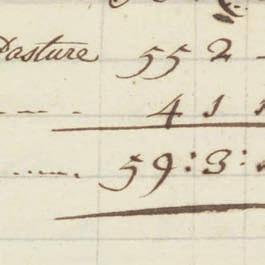 Pasture 55 2
4 1 1
59:3: